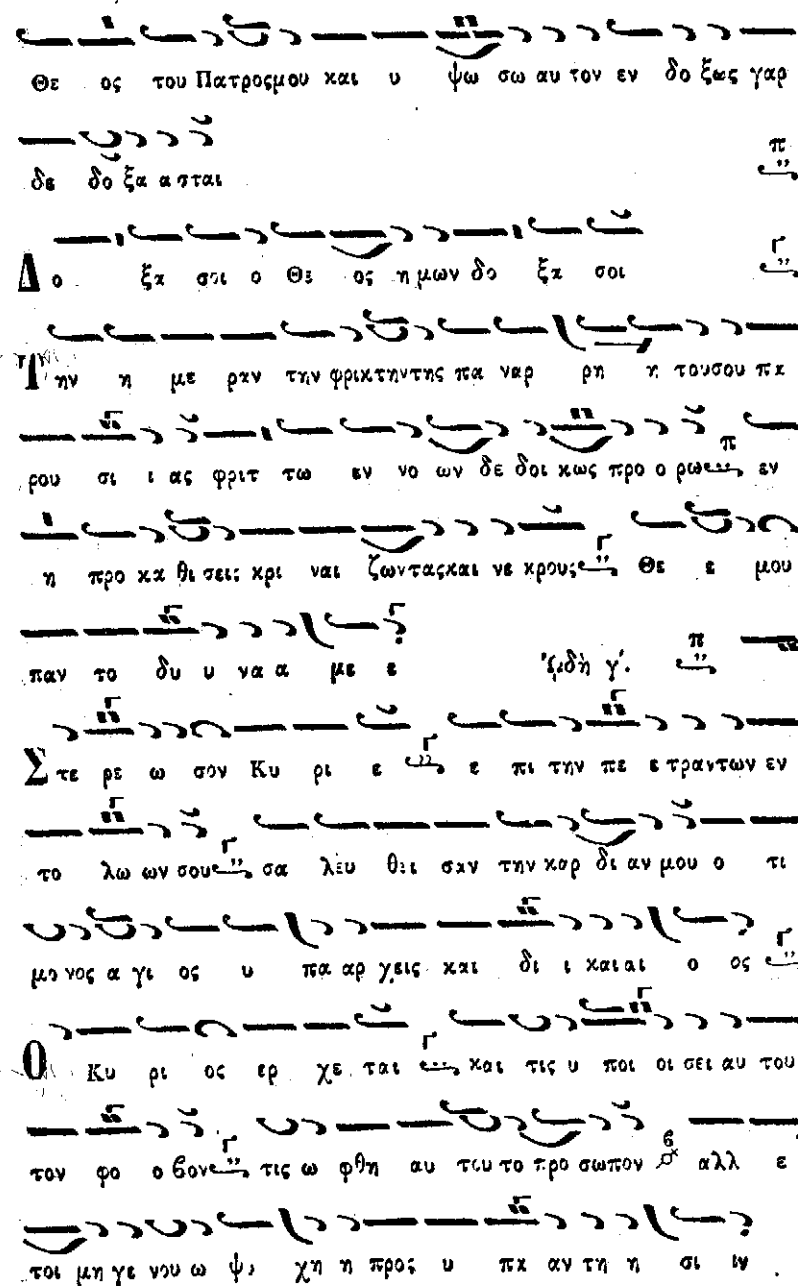 Θε ος του Πατρος μου και υ ψω σω αυ τον εν δο ξως γαρ
δε δο ξα α σται π
Δο ξα σοι ο Θε ος η μων δο ξα σοι Γ
Την η με ραν την φρικτην της πα ναρ ρη η του σου πα
ρου σι ι ας φριτ τω εν νο ων δε δοι κως προ ο ρω π εν
η προ κα θι σεις κρι ναι ζωντας και νε κρους Γ Θε ε μου
παν το δυ υ να α με ε ᾨδὴ γ΄. π
Στε ρε ω σον Κυ ρι ε Γ ε πι την πε ε τραν των εν
το λω ων σου Γ σα λευ θει σαν την καρ δι αν μου ο τι
μο νος α γι ος υ πα αρ χεις και δι ι και αι ο ος Γ
Ο Κυ ρι ος ερ χε ται Γ και τις υ ποι οι σει αυ του
τον φο ο βον Γ τις ω φθη αυ του το προ σωπον β αλλ ε
τοι μη γε νου ω ψυ χη η προς υ πα αν τη η σι ιν